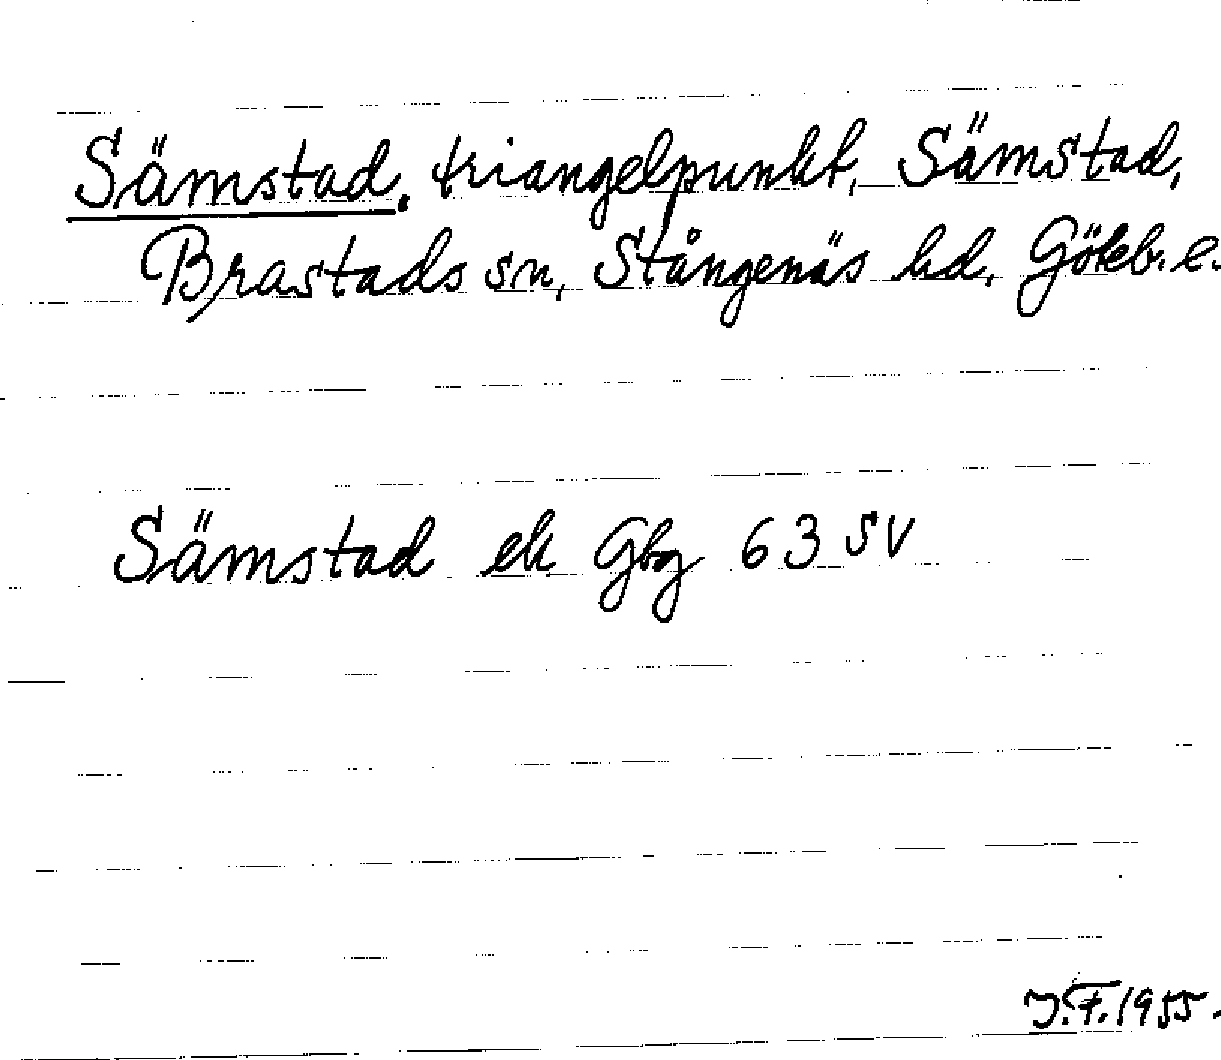 Sämstad, triangelpunkt, Sämstad,
Brastads sn, Stångenäs hd, Göteb. l.
Sämstad ek Gbg 63 SV
J.F. 1955.